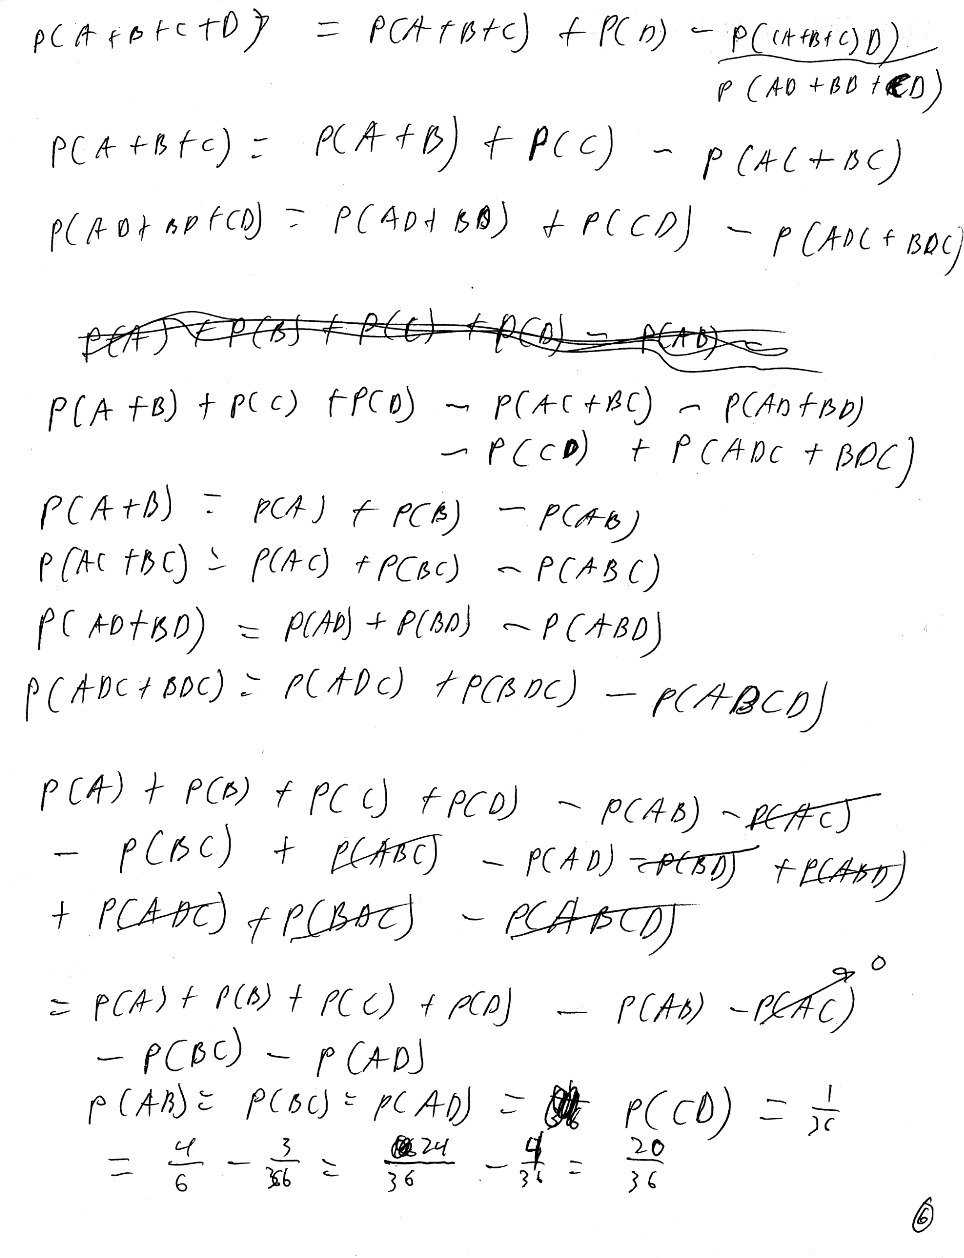 P(A+B+C+D) = P(A+B+C) + P(D) - P((A+B+C)D)
P(AD+BD+CD)
P(A+B+C) = P(A+B) + P(C) - P(AC+BC)
P(AD+BD+CD) = P(AD+BD) + P(CD) - P(ADC+BDC)
P(A) + P(B) + P(C) + P(D) - P(AB) -
P(A+B) + P(C) + P(D) - P(AC+BC) - P(AD+BD)
- P(CD) + P(ADC + BDC)
P(A+B) = P(A) + P(B) - P(AB)
P(AC+BC) = P(AC) + P(BC) - P(ABC)
P(AD+BD) = P(AD) + P(BD) - P(ABD)
P(ADC+BDC) = P(ADC) + P(BDC) - P(ABCD)
P(A) + P(B) + P(C) + P(D) - P(AB) - P(AC)
- P(BC) + P(ABC) - P(AD) - P(BD) + P(ABD)
+ P(ADC) + P(BDC) - P(ABCD)
= P(A) + P(B) + P(C) + P(D) - P(AB) - P(AC) 0
- P(BC) - P(AD)
P(AB) = P(BC) = P(AD) = P(CD) = 1/36
= 4/6 - 3/36 = 24/36 - 4/36 = 20/36
6